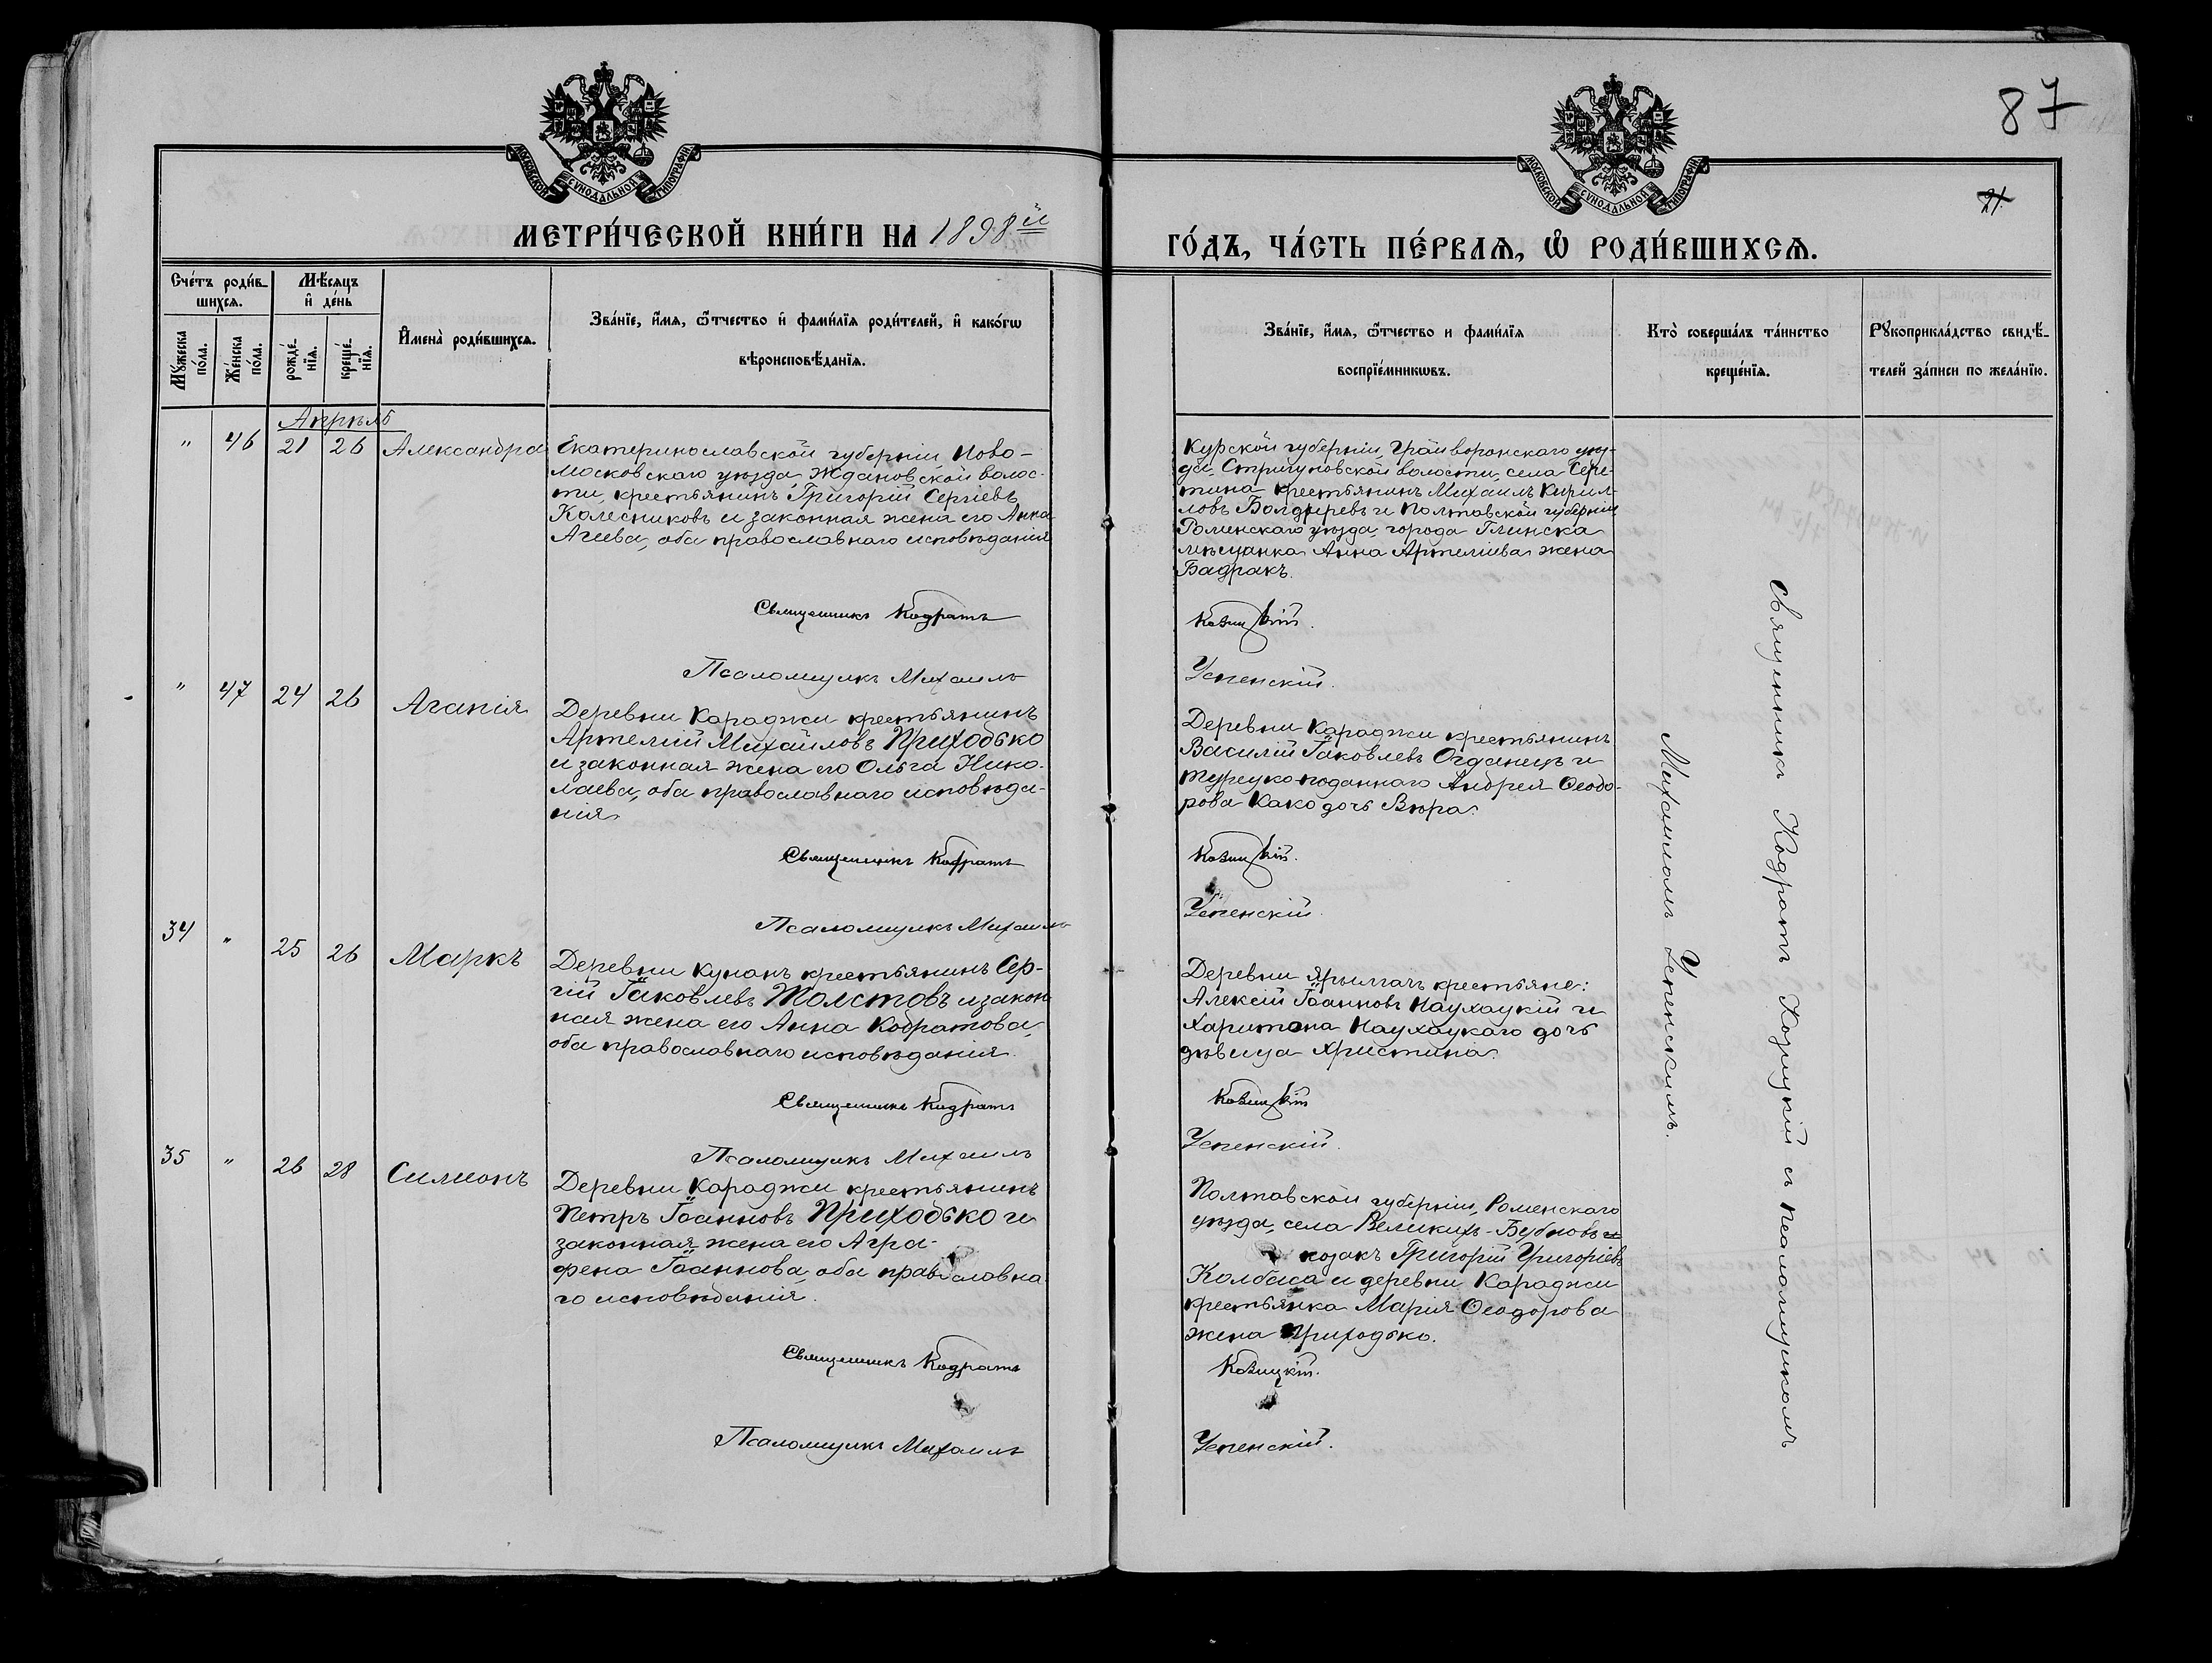 87
21.
МОСКОВСКОЙ СѴНОДАЛЬНОЙ ТИПОГРАФІИ
МОСКОВСКОЙ СѴНОДАЛЬНОЙ ТИПОГРАФІИ
МЕТРИ́ЧЕСКОЙ КНИ́ГИ НА 1898й
ГО́ДЪ, ЧА́СТЬ ПЕ́РВАѦ, Ѡ҆ РОДИ́ВШИХСѦ.
Сче́тъ роди́в-
шихсѧ.
Мꙋ́жеска по́ла.
Же́нска по́ла.
Мѣ́сѧцъ
и҆ де́нь
рожде́-
нїѧ.
креще́-
нїѧ.
И҆мена̀ роди́вшихсѧ.
Зва́нїе, и҆́мѧ, ѻ҆́тчество и҆ фами́лїѧ роди́телей, и҆ како́гѡ
вѣроисповѣ́данїѧ.
Зва́нїе, и҆́мѧ, ѻ҆́тчество и фами́лїѧ
воспрїе́мникѡвъ.
Кто̀ соверша́лъ та́инство
креще́нїѧ.
Рꙋкоприкла́дство свидѣ́-
телей за́писи по жела́нїю.
Апрѣль
" 46 21 26 Александра
Екатеринославской губерніи Ново-
московскаго уѣзда, Ждановской волос-
ти, крестьянинъ Григорій Сергіевъ
Колесниковъ и законная жена его Анна
Агіева, оба православнаго исповѣданія
Священникъ Кодратъ
Псаломщикъ Михаилъ
Курской губерніи, Грайворонскаго уѣз-
да, Стригуновской волости, села Сере-
тина крестьянинъ Михаилъ Кирил-
ловъ Болдыревъ и Полтавской губерніи
Роменскаго уѣзда, города Глинска
мѣщанка Анна Артеміева жена
Бадракъ.
Козицкій.
Успенскій.
" 47 24 26 Агапія
Деревни Караджи крестьянинъ
Артемій Михайловъ Приходько
и законная жена его Ольга Нико-
лаева, оба православнаго исповѣда-
нія
Священникъ Кодратъ
Псаломщикъ Михаилъ
Деревни Караджи крестьянинъ
Василій Іаковлевъ Огданецъ и
турецкоподданнаго Андрея Ѳеодо-
рова Како дочь Вѣра.
Козицкій.
Успенскій.
34 " 25 26 Маркъ
Деревни Кунанъ крестьянинъ Сер-
гій Іаковлевъ Толстовъ и закон
ная жена его Анна Кодратова,
оба православнаго исповѣданія.
Священникъ Кодратъ
Псаломщикъ Михаилъ
Деревни Ярылгачъ крестьяне:
Алексій Іоанновъ Наухацкій и
Харитона Наухацкаго дочь
дѣвица Христина.
Козицкій
Успенскій.
35 " 26 28 Симеонъ
Деревни Караджи крестьянинъ
Петръ Іоанновъ Приходько и
законная жена его Агра-
фена Іоаннова, оба православна
го исповѣданія.
Священникъ Кодратъ
Псаломщикъ Михаилъ
Полтавской губерніи, Роменскаго
уѣзда, села Великихъ-Бубновъ
козакъ Григорій Григоріевъ
Колбаса и деревни Караджи
крестьянка Марія Ѳеодорова
жена Приходько.
Козицкій.
Успенскій.
Священникъ Кодратъ Козицкій съ псаломщикомъ
Михаиломъ Успенскимъ.